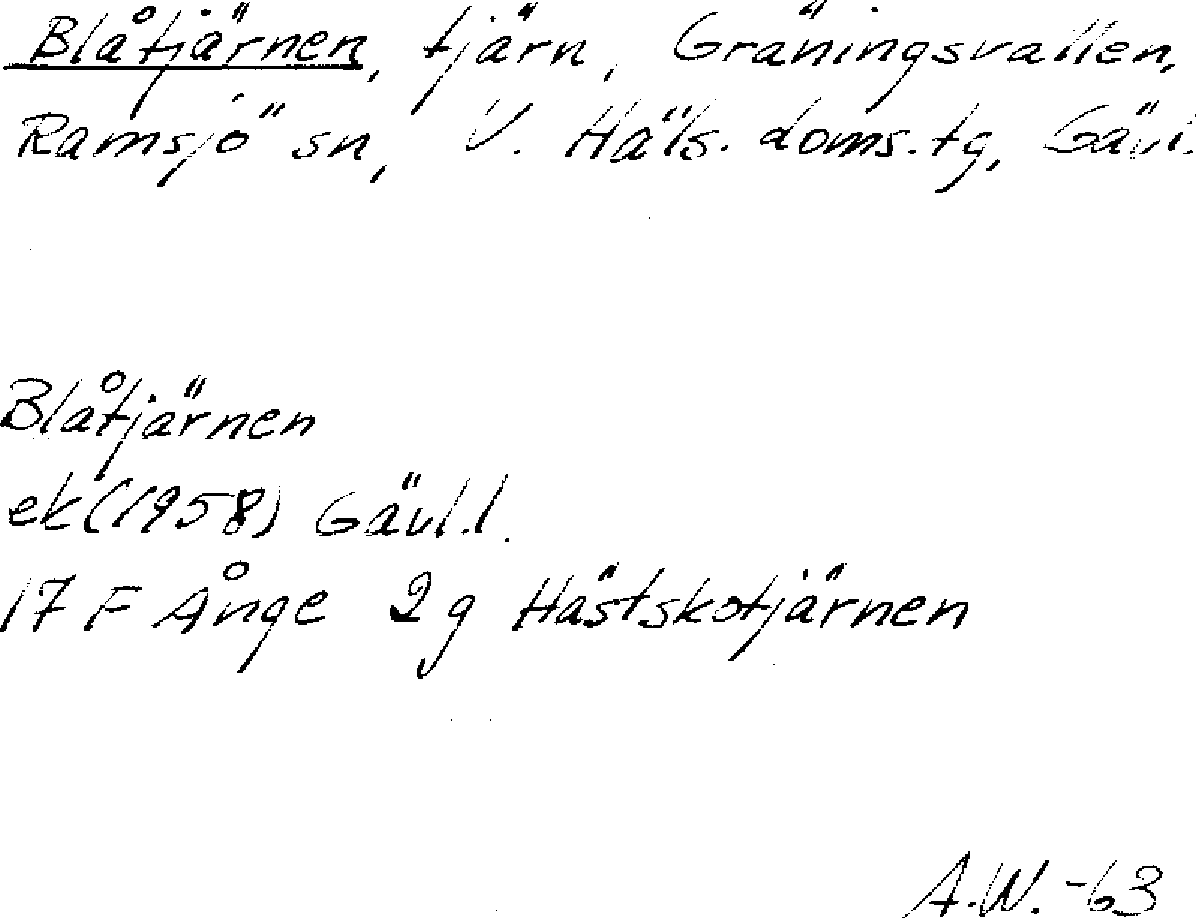 Blåtjärnen, tjärn, Gräningsvallen,
Ramsjö sn, V. Häls. doms.tg, Gävl.
Blåtjärnen
ek (1958) Gävl.l.
17 F Ånge 2g Hästskotjärnen
A.W. -63